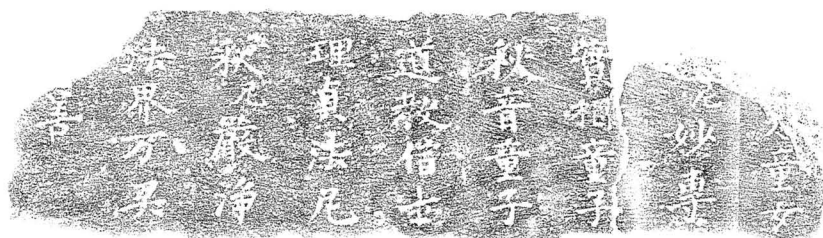 童女
尼妙専
寳相童子
秋音童子
道教信士
理貞法尼
釈尼嚴浄
法界万灵
善